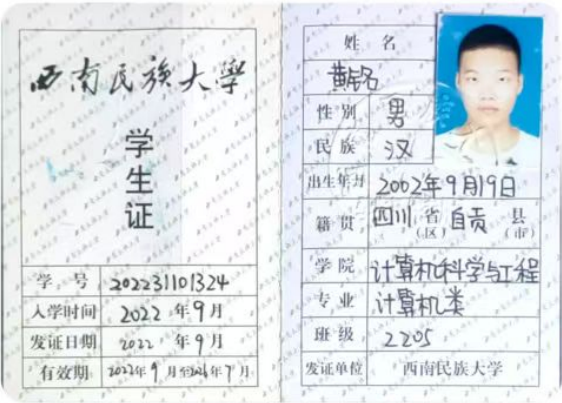 西南民族大學
学生证
学 号 202231101324
入学时间 2022 年 9 月
发证日期 2022 年 9 月
有效期 2022年 9 月至2026年 7 月
姓 名
黄铭
性 别 男
民 族 汉
出生年月 2002年9月19日
籍 贯 四川 省(区) 自贡 县(市)
学 院 计算机科学与工程
专 业 计算机类
班 级 2205
发证单位 西南民族大学